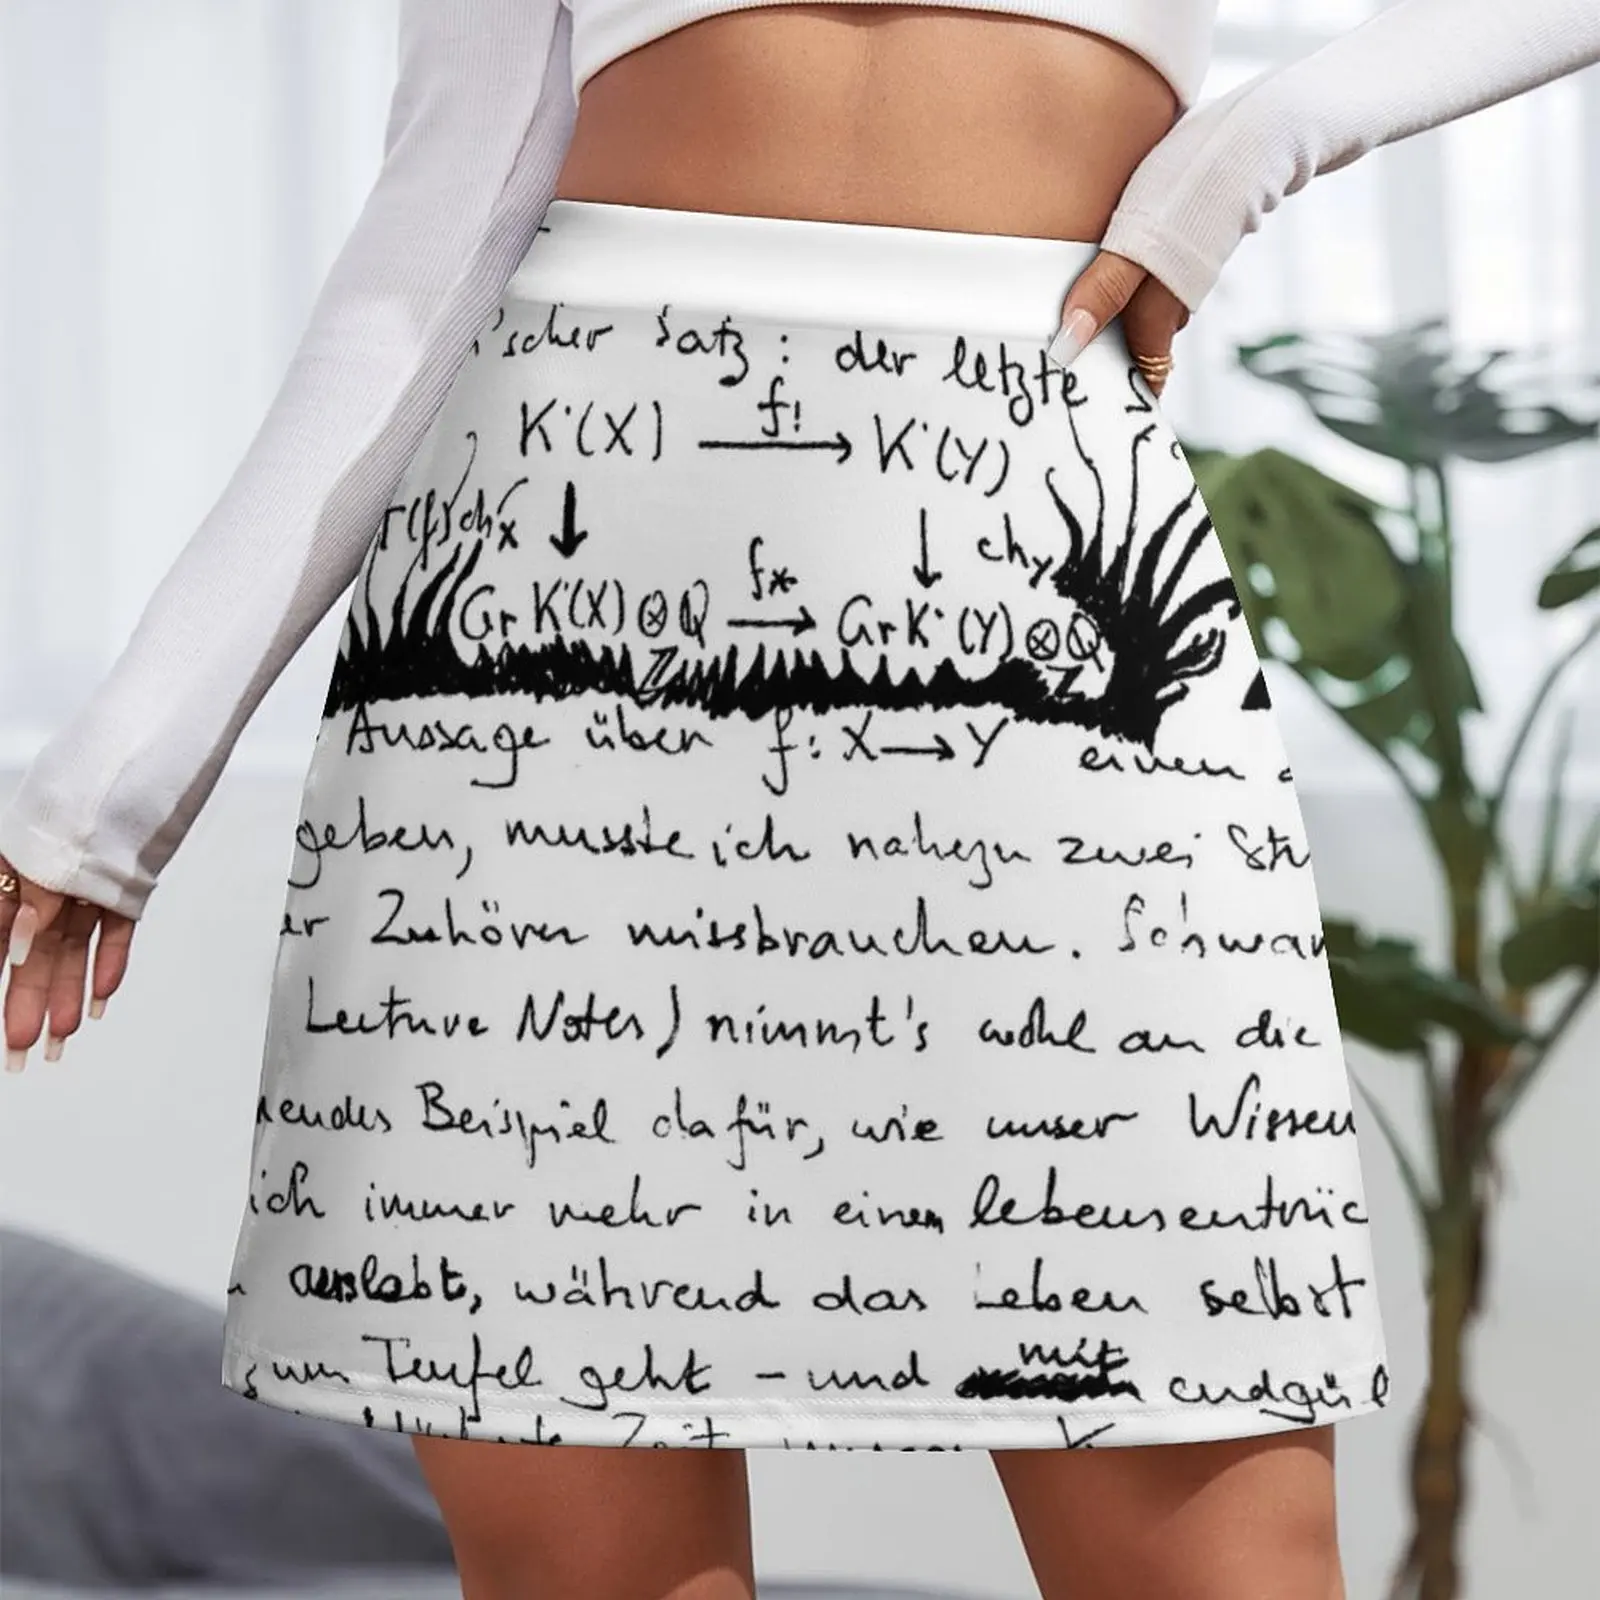 'scher Satz: der letzte S
K˙(X) f! → K˙(Y)
(f)ch_X ↓ ↓ ch_Y
Gr K˙(X) ⊗_Z Q f* → Gr K˙(Y) ⊗_Z Q
Aussage über f: X → Y einen
geben, musste ich nahezu zwei St
er Zuhörer missbrauchen. Schwar
Lecture Notes) nimmt's wohl an die
endes Beispiel dafür, wie unser Wissen
ich immer mehr in einem lebensentrüc
auslebt, während das Leben selbst
zum Teufel geht – und mit endgül
Zeit